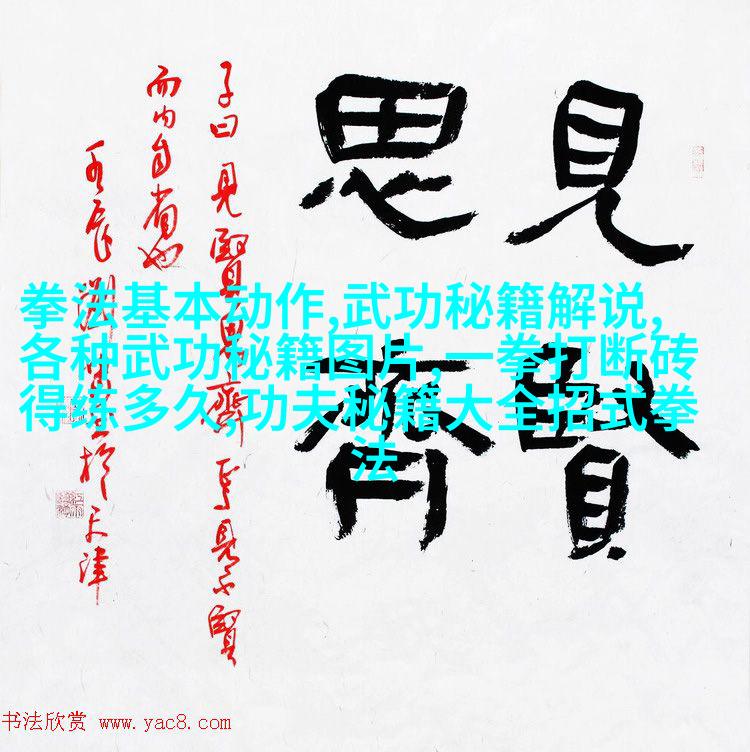 見賢
思齊
子曰見賢思齊焉見不賢
而內自省也
辰 於天津
拳法基本动作,武功秘籍解说,
各种武功秘籍图片,一拳打断砖
得练多久,功夫秘籍大全招式拳
法
书法欣赏 www.yac8.com